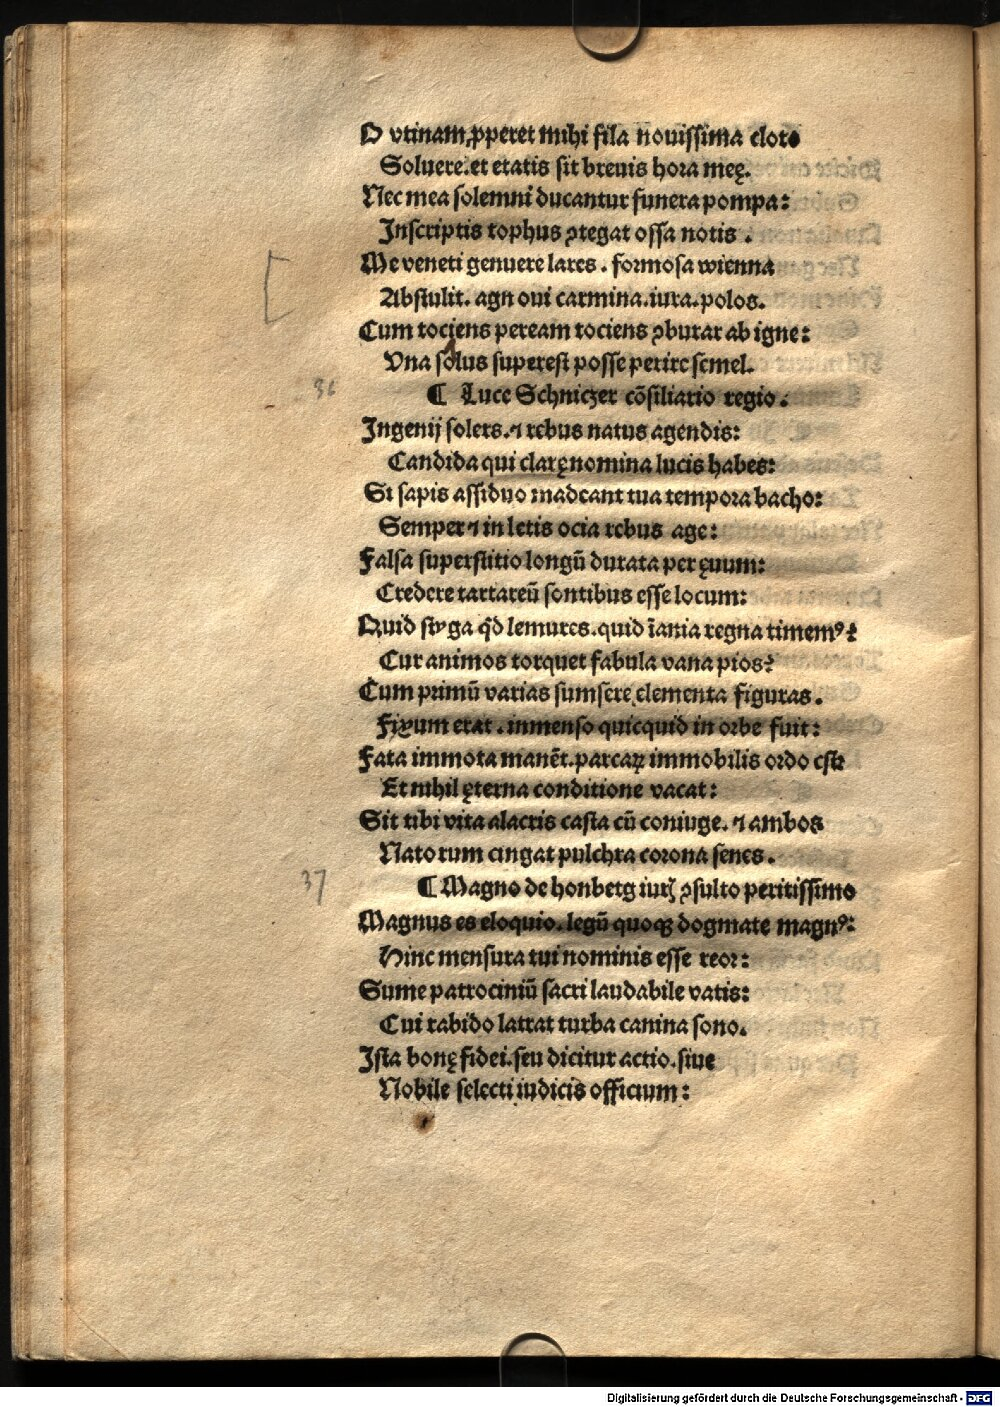 O vtinam ꝓperet mihi fila nouissima cloto
Soluere. et etatis sit breuis hora meę.
Nec mea solemni ducantur funera pompa:
Inscriptis tophus ꝯtegat ossa notis .
Me veneti genuere lares . formosa wienna
Abstulit. agn oui carmina. iura. polos.
Cum tociens peream tociens ꝯburar ab igne:
Vna solus superest posse perire semel.
36
¶ Luce Schniczer cōsiliario regio .
Ingenij solers. ⁊ rebus natus agendis:
Candida qui clarę nomina lucis habes:
Si sapis assiduo madeant tua tempora bacho:
Semper ⁊ in letis ocia rebus age:
Falsa superstitio longū durata per ęuum:
Credere tartareū sontibus esse locum:
Quid styga qd̄ lemures. quid īania regna timemꝰ?
Cur animos torquet fabula vana pios?
Cum primū varias sumsere elementa figuras .
Fixum erat . inmenso quicquid in orbe fuit:
Fata immota manēt. parcaꝝ immobilis ordo est:
Et nihil ęterna conditione vacat:
Sit tibi vita alacris casta cū coniuge. ⁊ ambos
Natorum cingat pulchra corona senes .
37
¶ Magno de honberg iurꝭ ꝯsulto peritissimo
Magnus es eloquio. legū quoqꝫ dogmate magnꝰ:
Hinc mensura tui nominis esse reor:
Sume patrociniū sacri laudabile vatis:
Cui rabido latrat turba canina sono.
Ista bonę fidei. seu dicitur actio. siue
Nobile selecti iudicis officium:
Digitalisierung gefördert durch die Deutsche Forschungsgemeinschaft - DFG